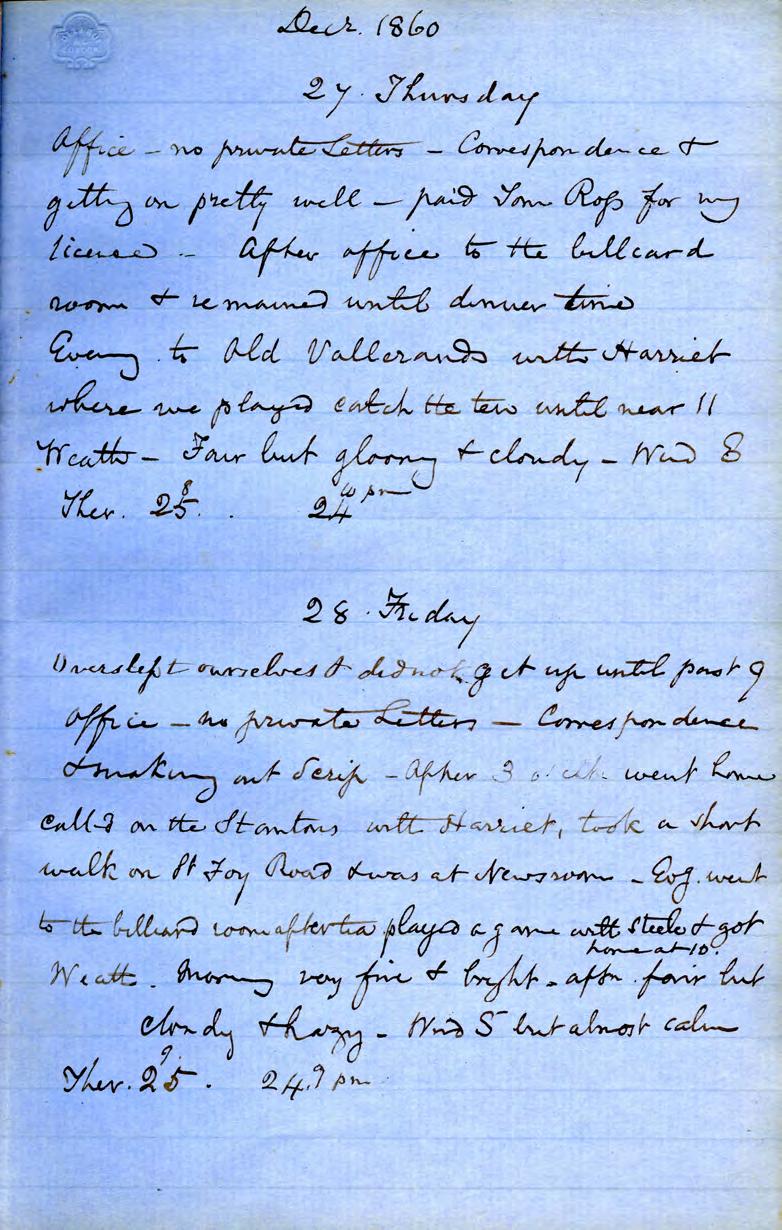 Decr. 1860
27 Thursday
Office - no private Letters - Correspondence &
getting on pretty well - paid Tom Ross for my
license - After office to the billiard
room & remained until dinner time
Eveng to Old Vallerands with Harriet
where we played catch the ten until near 11
Weath - Fair but gloomy & cloudy - Wind
Ther. 25 8 . 24 10 pm
28 Friday
Overslept ourselves & did not get up until past 9
Office - no private Letters - Correspondence
& making out Scrip - After 3 o'clk went home
call'd on the Stantons with Harriet, took a short
walk on St Foy Road & was at Newsroom - Evg. went
to the billiard room after tea played a game with Steele & got
home at 10.
Weath. Morning very fine & bright - aftn. fair but
cloudy & hazy - Wind S but almost calm
Ther. 25 9 . 24. 9 pm